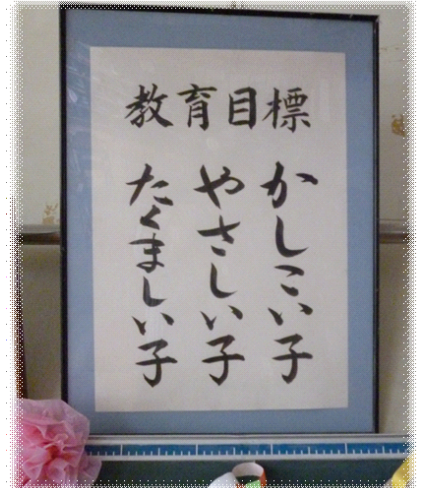 教育目標
かしこい子
やさしい子
たくましい子